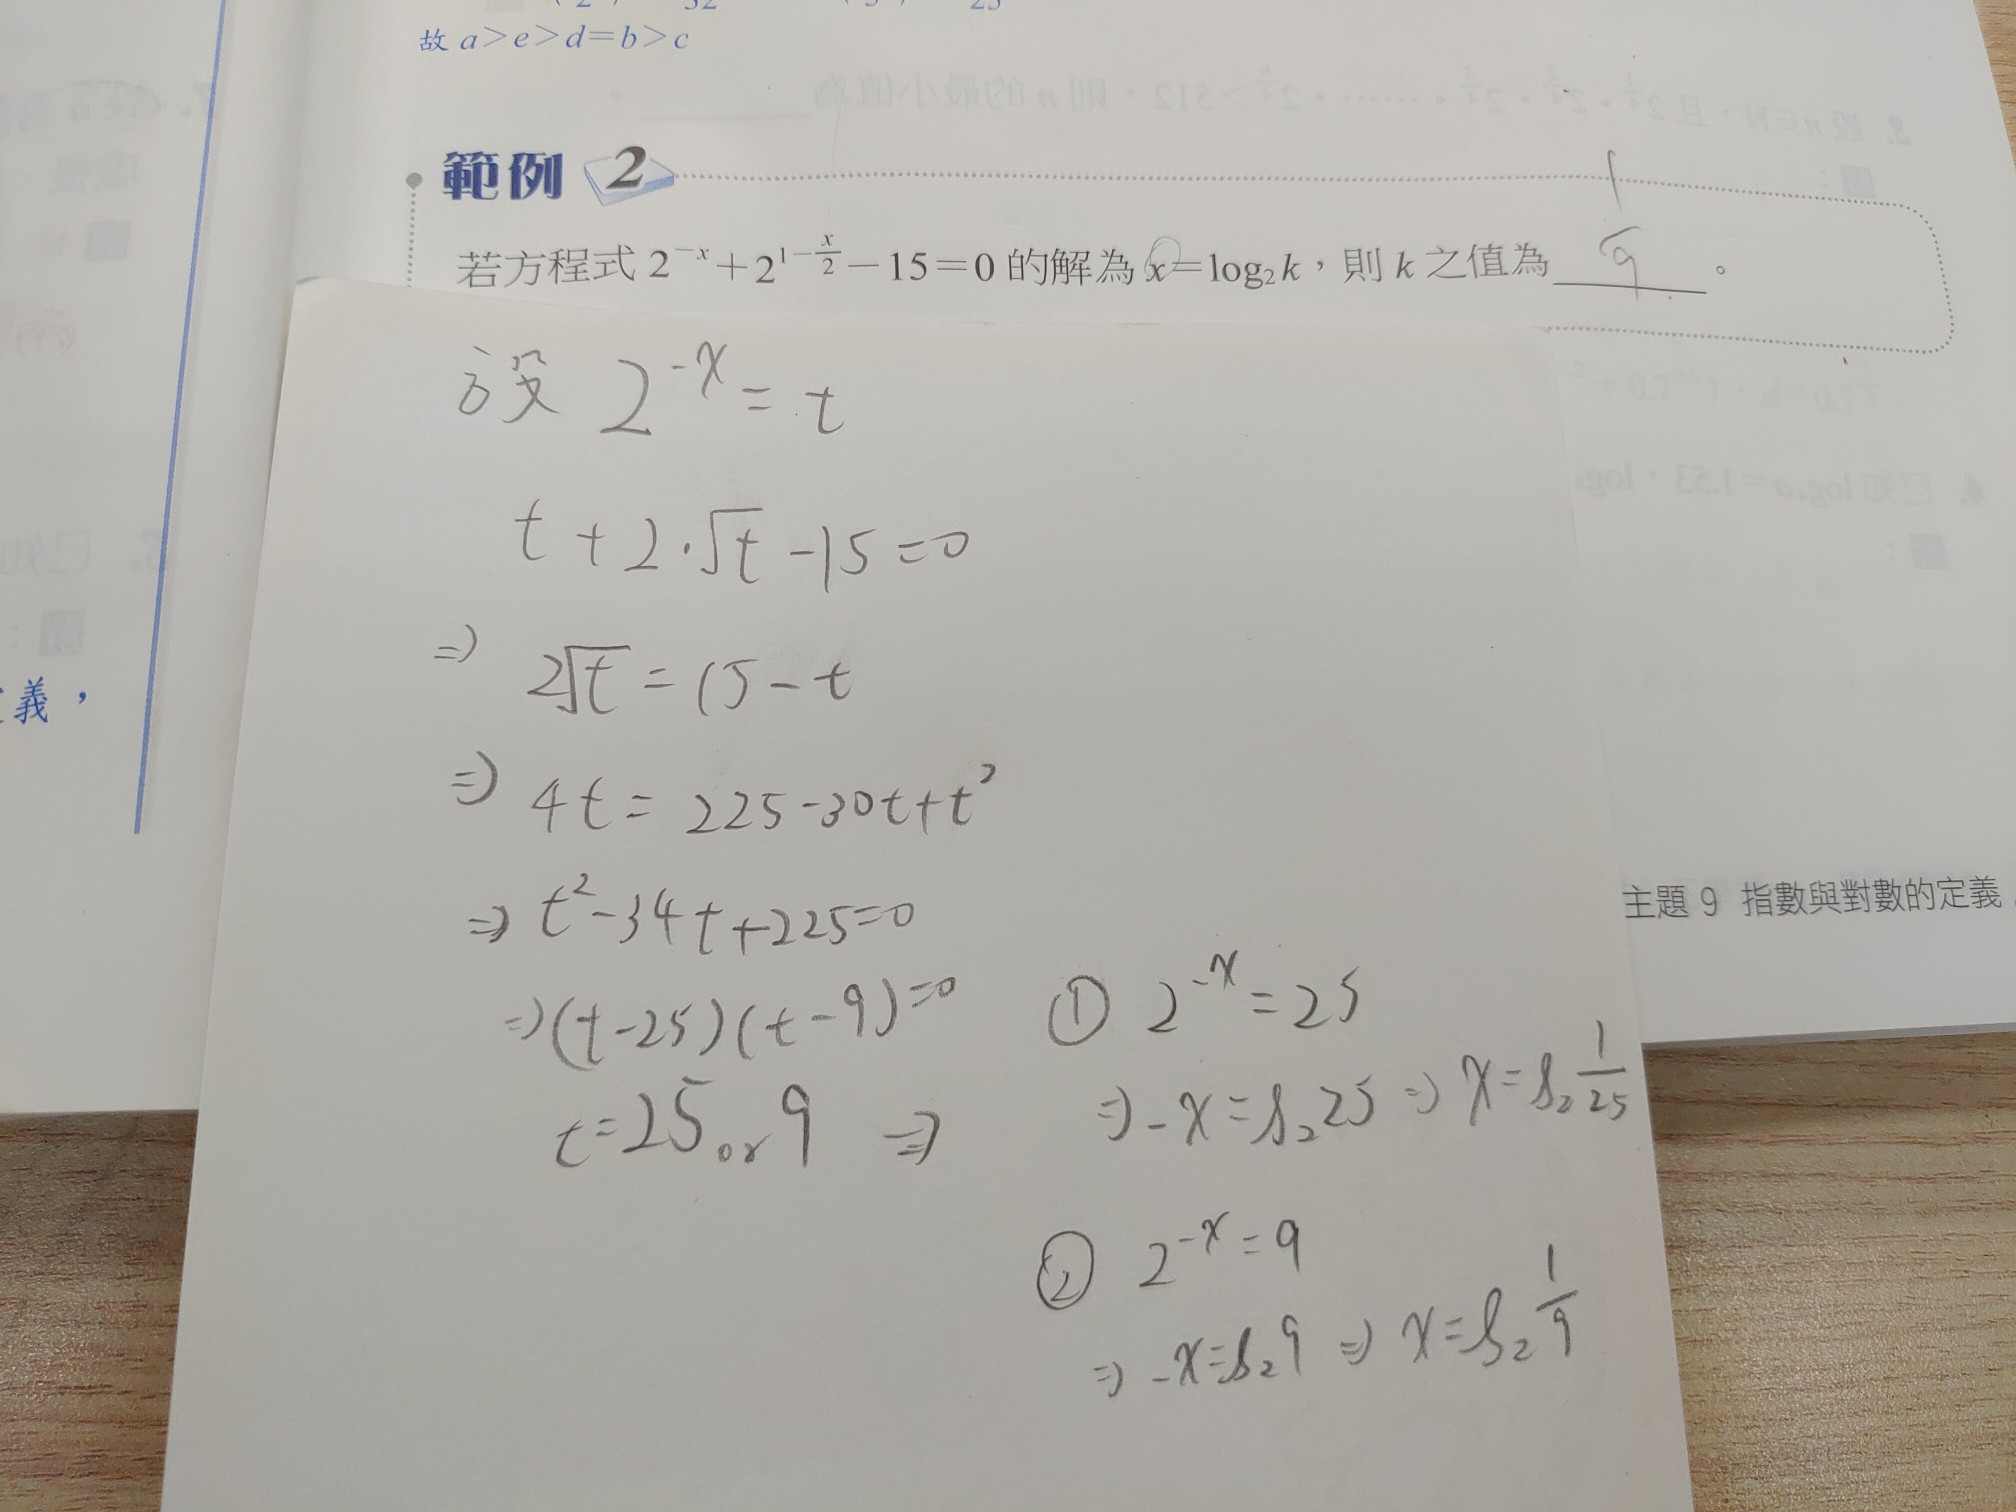 故 a>e>d=b>c
範例 2
若方程式 2^{-x}+2^{1-\frac{x}{2}}-15=0 的解為 x=log₂k，則 k 之值為 \frac{1}{9} 。
設 2^{-x} = t
t + 2·√t - 15 = 0
⇒ 2√t = 15 - t
⇒ 4t = 225 - 30t + t²
⇒ t² - 34t + 225 = 0
⇒ (t-25)(t-9) = 0
t = 25 or 9 ⇒
① 2^{-x} = 25
⇒ -x = log₂25 ⇒ x = log₂\frac{1}{25}
② 2^{-x} = 9
⇒ -x = log₂9 ⇒ x = log₂\frac{1}{9}
義，
主題 9 指數與對數的定義